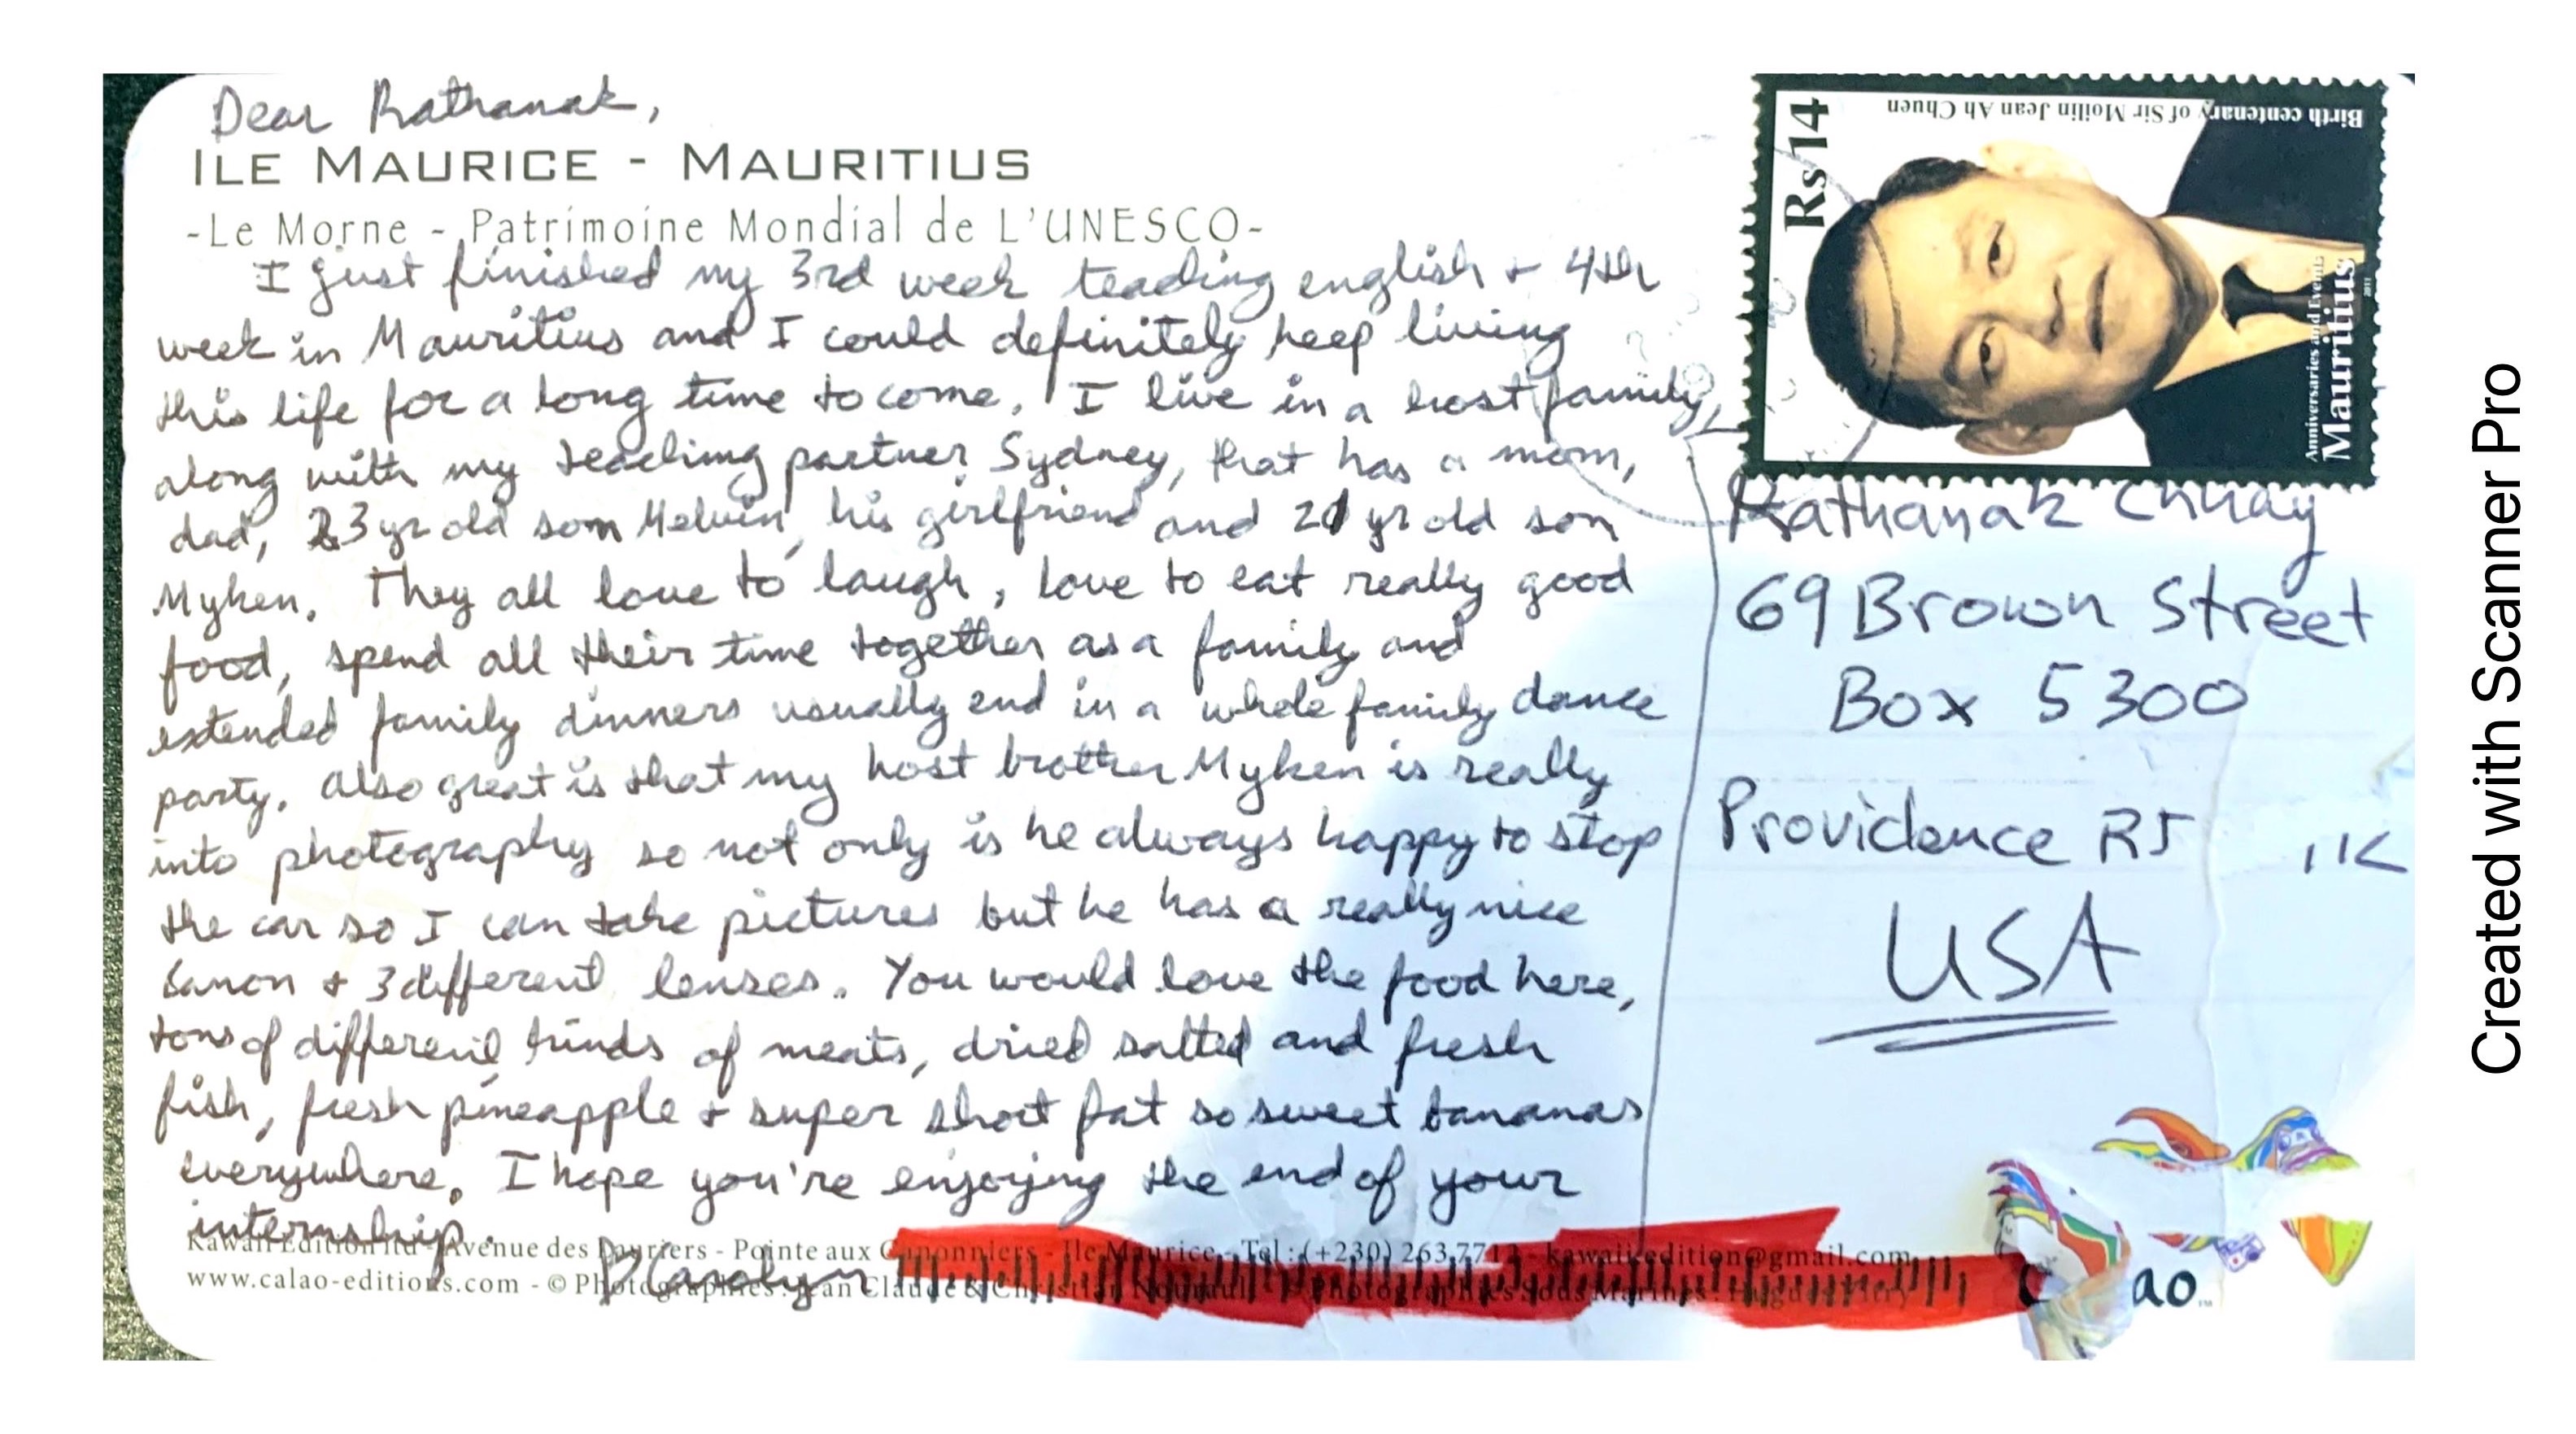 Dear Rathanak,
ILE MAURICE - MAURITIUS
-Le Morne - Patrimoine Mondial de L'UNESCO-
I just finished my 3rd week teaching english + 4th
week in Mauritius and I could definitely keep living
this life for a long time to come. I live in a host family,
along with my teaching partner Sydney, that has a mom,
dad, 23 yr old son Melvin, his girlfriend and 21 yr old son
Myken. They all love to laugh, love to eat really good
food, spend all their time together as a family and
extended family dinners usually end in a whole family dance
party. Also great is that my host brother Myken is really
into photography so not only is he always happy to stop
the car so I can take pictures but he has a really nice
Canon + 3 different lenses. You would love the food here,
tons of different kinds of meats, dried salted and fresh
fish, fresh pineapple + super short fat so sweet bananas
everywhere. I hope you're enjoying the end of your
internship.
Carolyn
Kawaii Edition ltd - Avenue des Lauriers - Pointe aux Canonniers - Ile Maurice - Tel : (+230) 263 77 - kawaiiedition@gmail.com
www.calao-editions.com - © Photographies : Jean Claude & Christian - Photographies Sous Marines : Hugues
Rs 14
Birth centenary of Sir Moilin Jean Ah Chuen
Anniversaries and Events
Mauritius
2011
Rathanak Chhay
69 Brown Street
Box 5300
Providence RI
USA
ao
Created with Scanner Pro